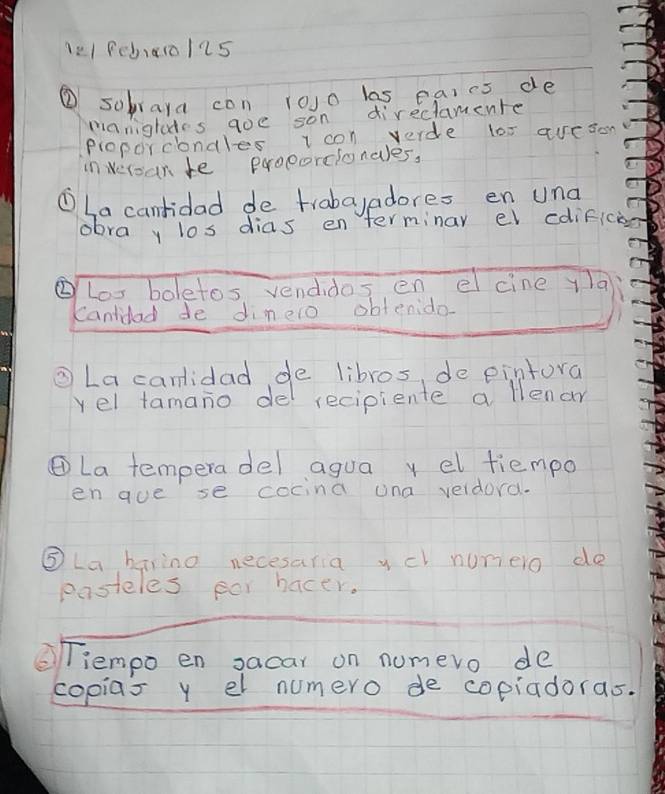 12/ Febraro / 25
① sobraya con rojo las paies de
maniglutes qoe son directamente
proporcionales y con verde los que son
inversan te proporcionales.
① La cantidad de trabajadores en una
obra y los dias en terminar el edificio
② Los boletos vendidos en el cine y la
cantidad de dinero obtenido
③ La cantidad de libros, de pintura
y el tamaño del recipiente a llenar
④ La tempera del agua y el tiempo
en que se cocina una verdora.
⑤ La harina necesaria y el numero de
pasteles por hacer.
⑥ Tiempo en sacar un numero de
copias y el numero de copiadoras.